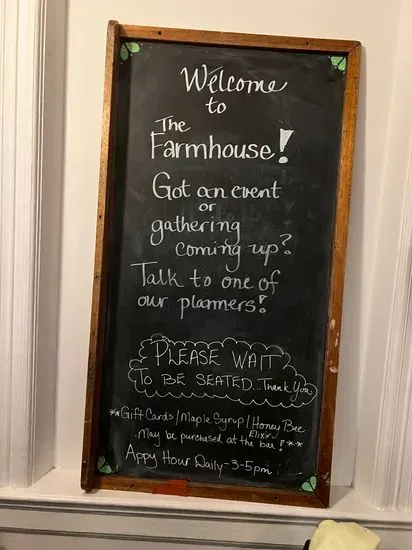 Welcome
to
The
Farmhouse!
Got an event
or
gathering
coming up?
Talk to one of
our planners!
PLEASE WAIT
TO BE SEATED...Thank You
**Gift Cards/Maple Syrup/Honey Bee
Elixir
May be purchased at the bar!**
Appy Hour Daily-3-5pm